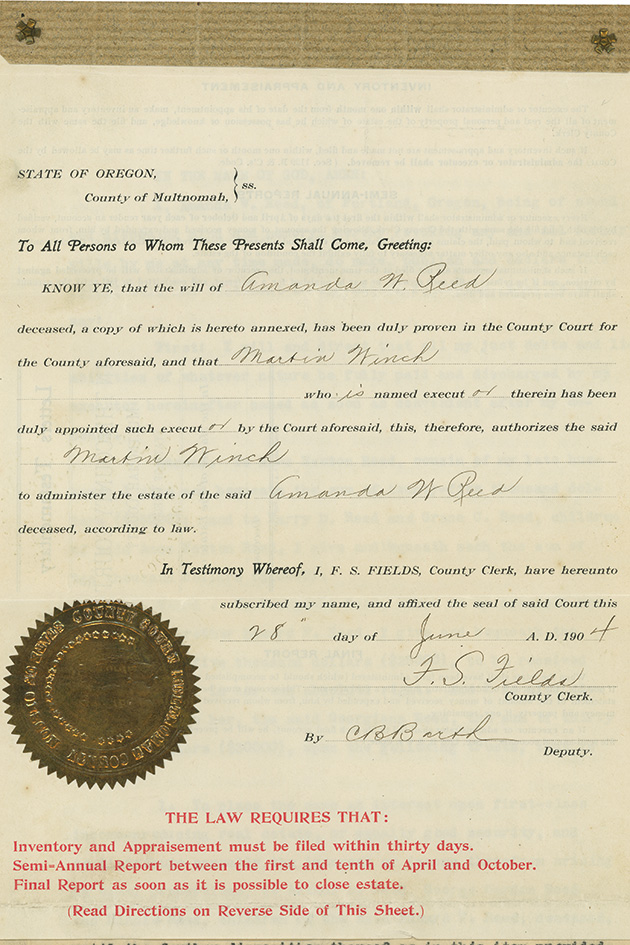 STATE OF OREGON,
County of Multnomah, } ss.
To All Persons to Whom These Presents Shall Come, Greeting:
KNOW YE, that the will of Amanda W. Reed
deceased, a copy of which is hereto annexed, has been duly proven in the County Court for
the County aforesaid, and that Martin Winch
who is named execut or therein has been
duly appointed such execut or by the Court aforesaid, this, therefore, authorizes the said
Martin Winch
to administer the estate of the said Amanda W Reed
deceased, according to law.
In Testimony Whereof, I, F. S. FIELDS, County Clerk, have hereunto
subscribed my name, and affixed the seal of said Court this
28" day of June A. D. 1904
F. S. Fields
County Clerk.
By CBBarth
Deputy.
THE LAW REQUIRES THAT:
Inventory and Appraisement must be filed within thirty days.
Semi-Annual Report between the first and tenth of April and October.
Final Report as soon as it is possible to close estate.
(Read Directions on Reverse Side of This Sheet.)